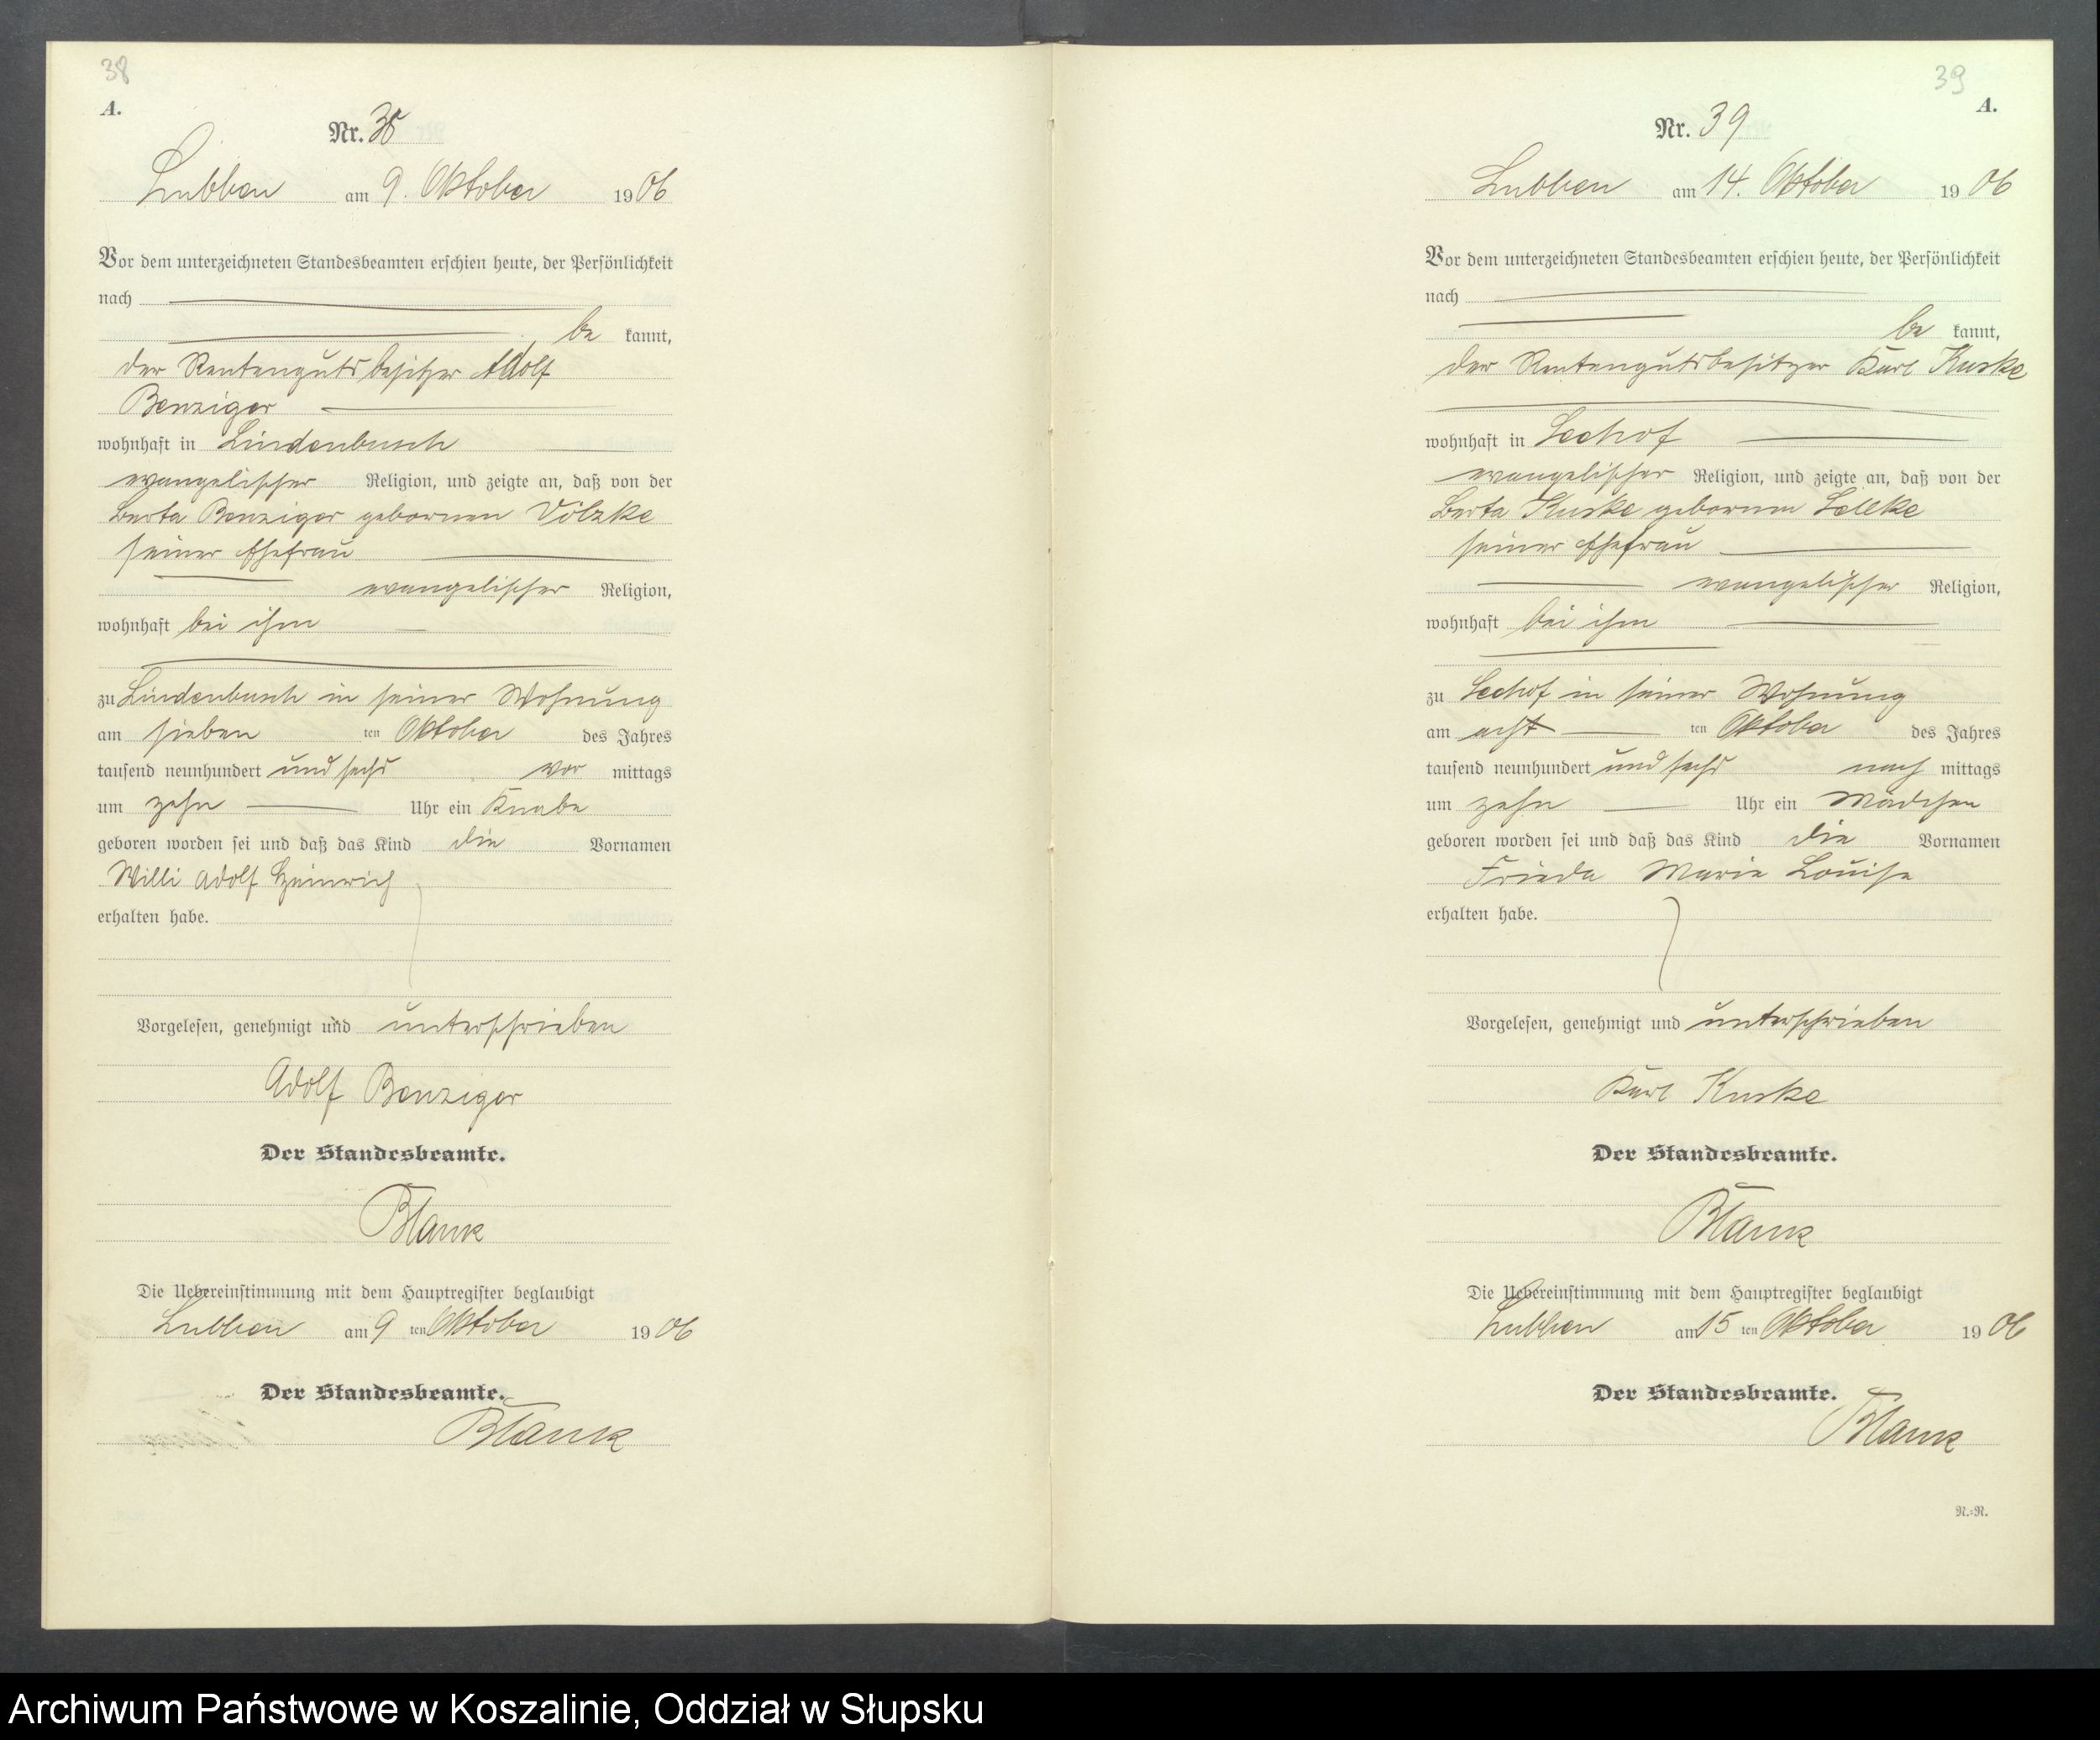 38
A.
Nr. 38
Lubben am 9. Oktober 1906
Vor dem unterzeichneten Standesbeamten erschien heute, der Persönlichkeit
nach
be kannt,
der Rentengutsbesitzer Adolf
Benziger
wohnhaft in Lindenbusch
evangelischer Religion, und zeigte an, daß von der
Berta Benziger gebornen Völzke
seiner Ehefrau
evangelischer Religion,
wohnhaft bei ihm
zu Lindenbusch in seiner Wohnung
am sieben ten Oktober des Jahres
tausend neunhundert und sechs vor mittags
um zehn Uhr ein Knabe
geboren worden sei und daß das Kind die Vornamen
Willi Adolf Heinrich
erhalten habe.
Vorgelesen, genehmigt und unterschrieben
Adolf Benziger
Der Standesbeamte.
Blank
Die Uebereinstimmung mit dem Hauptregister beglaubigt
Lubben am 9 ten Oktober 1906
Der Standesbeamte.
Blank
39
A.
Nr. 39
Lubben am 14. Oktober 1906
Vor dem unterzeichneten Standesbeamten erschien heute, der Persönlichkeit
nach
be kannt,
der Rentengutsbesitzer Karl Kuske
wohnhaft in Seehof
evangelischer Religion, und zeigte an, daß von der
Berta Kuske gebornen
seiner Ehefrau
evangelischer Religion,
wohnhaft bei ihm
zu Seehof in seiner Wohnung
am acht ten Oktober des Jahres
tausend neunhundert und sechs nach mittags
um zehn Uhr ein Mädchen
geboren worden sei und daß das Kind die Vornamen
Frieda Marie Louise
erhalten habe.
Vorgelesen, genehmigt und unterschrieben
Karl Kuske
Der Standesbeamte.
Blank
Die Uebereinstimmung mit dem Hauptregister beglaubigt
Lubben am 15 ten Oktober 1906
Der Standesbeamte.
Blank
R.=R.
Archiwum Państwowe w Koszalinie, Oddział w Słupsku